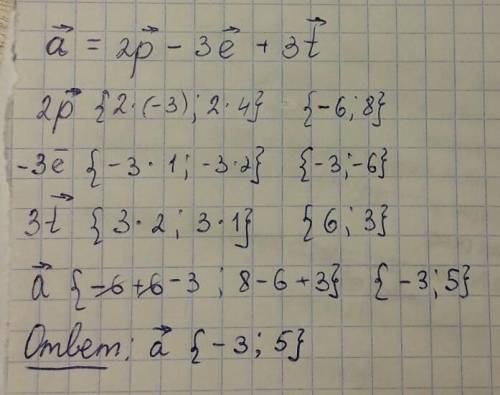 a⃗ = 2p⃗ - 3e⃗ + 3t⃗
2p⃗ {2·(-3); 2·4} {-6; 8}
-3e⃗ {-3·1; -3·2} {-3; -6}
3t⃗ {3·2; 3·1} {6; 3}
a⃗ {-6+6-3; 8-6+3} {-3; 5}
Ответ: a⃗ {-3; 5}